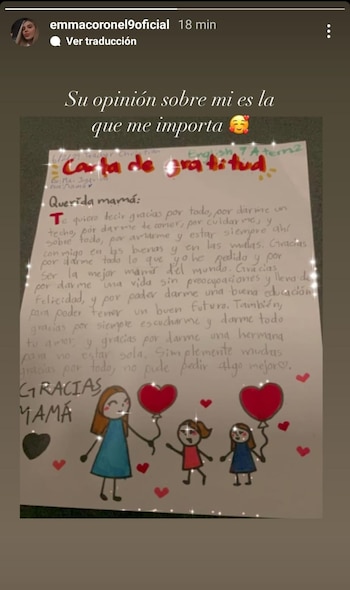 emmacoronel9oficial 18 min
Ver traducción
Su opinión sobre mi es la
que me importa 🥰
English 7A
Carta de gratitud
Querida mamá:
Te quiero decir gracias por todo, por darme un
techo, por darme tu amor, por cuidarme, y
sobre todo, por amarme y estar siempre ahí
conmigo en las buenas y en las malas. Gracias
por darme todo lo que yo he pedido y por
ser la mejor mamá del mundo. Gracias
por darme una vida sin preocupaciones y llena de
felicidad, y por poder darme una buena educación
para poder tener un buen futuro. También,
gracias por siempre escucharme y darme todo
tu amor y gracias por darme una hermana
para no estar sola. Simplemente muchas
gracias por todo, no pude pedir algo mejor♡.
GRACIAS
MAMÁ